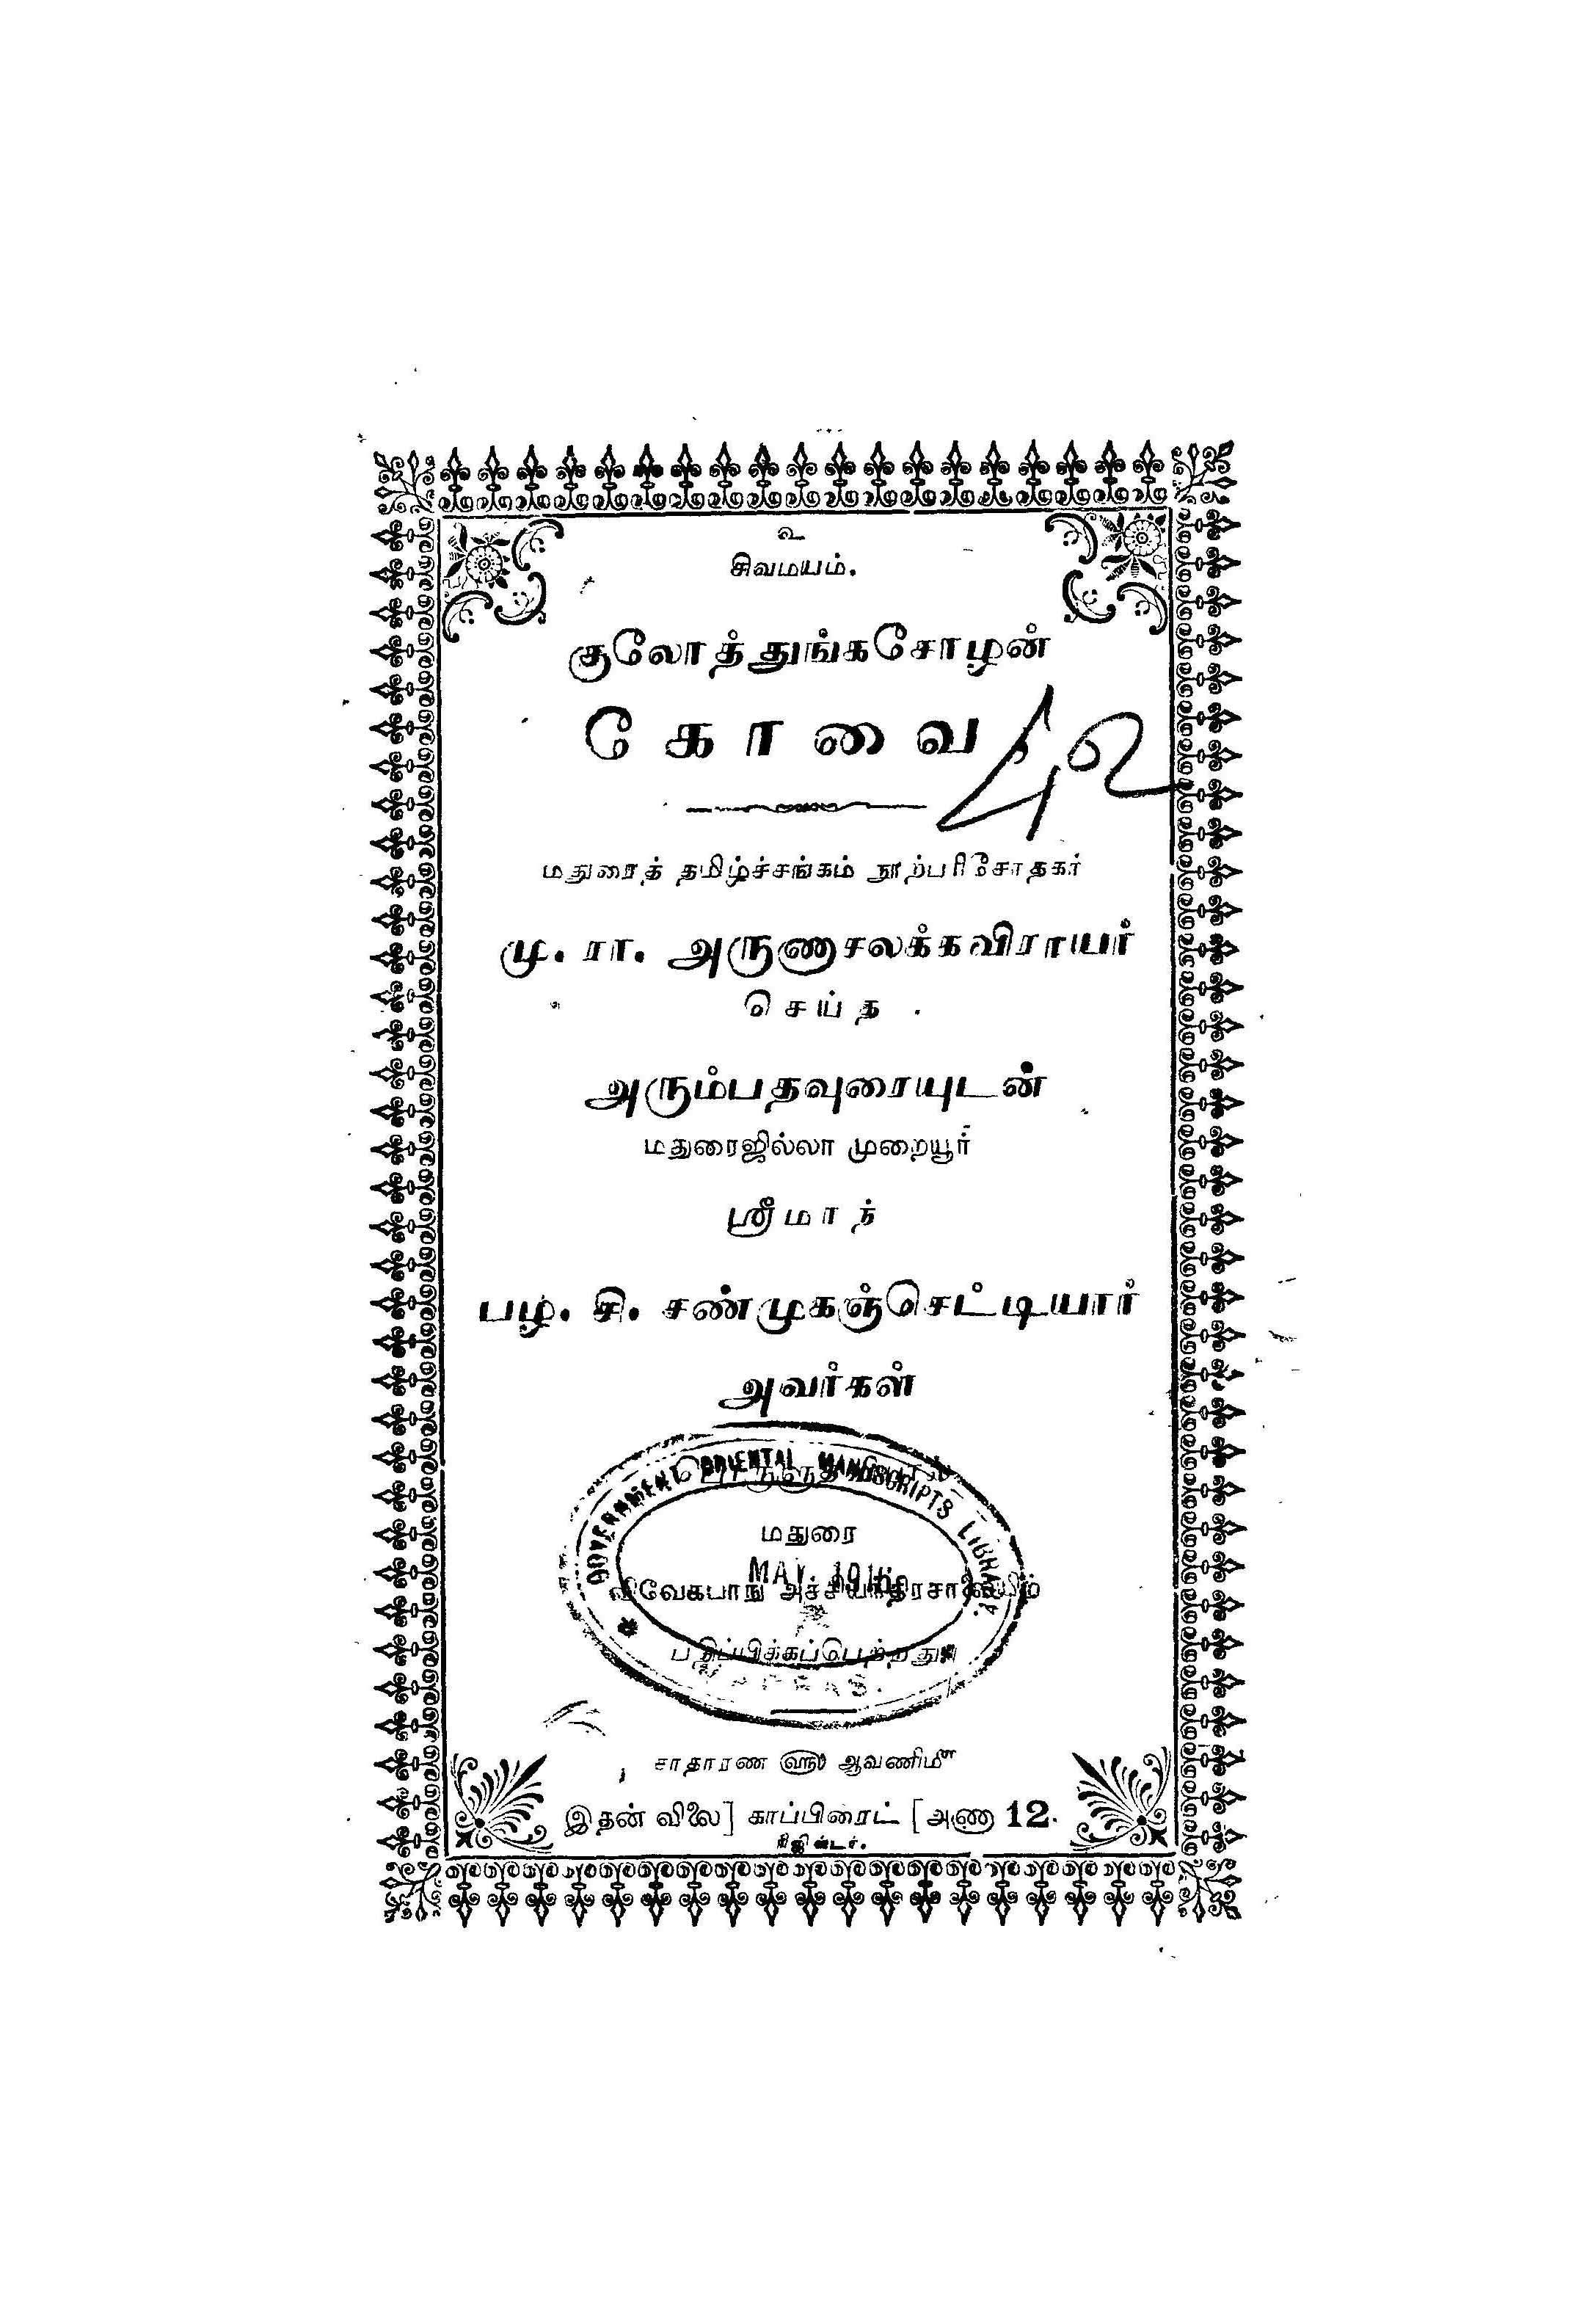 உ
சிவமயம்.
குலோத்துங்கசோழன்
கோவை
42
மதுரைத் தமிழ்ச்சங்கம் நூற்பரிசோதகர்
மு. ரா. அருணாசலக்கவிராயர்
செய்த
அரும்பதவுரையுடன்
மதுரைஜில்லா முறையூர்
ஸ்ரீமாந்
பழ. சி. சண்முகஞ்செட்டியார்
அவர்கள்
GOVERNMENT ORIENTAL MANUSCRIPTS LIBRARY
மதுரை
விவேகபாநு அச்சியந்திரசாலையில்
பதிப்பிக்கப்பெற்றது
MADRAS.
சாதாரண ௵ ஆவணி௴
இதன் விலை] காப்பிரைட் [அணா 12.
ரிஜிஸ்டர்.